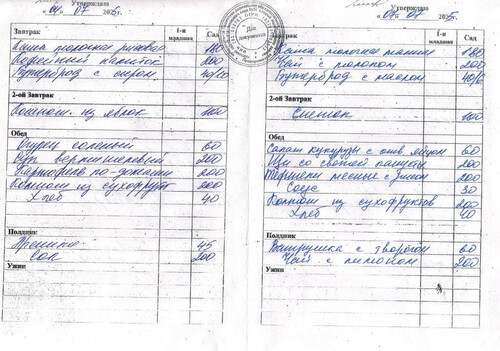 Утверждаю
Завтрак 1-я младшая Сад
Каша молочная рисовая 180
Кофейный напиток 200
Бутерброд с сыром 40/10
2-ой Завтрак
Компот из яблок 100
Обед
Огурец соленый 60
Суп вермишелевый 200
Картофель по-домашн 200
Компот из сухофрукт 200
Хлеб 40
Полдник
45
Сок 200
Ужин
Для документов
Утверждаю
Завтрак 1-я младшая Сад
Каша молочная манная 180
Чай с молоком 200
Бутерброд с маслом
2-ой Завтрак
100
Обед
Салат кукурузы с отв. яйцом 60
Щи со свежей капусты 200
Тефтели мясные с рисом 200
Соус 30
Компот из сухофруктов 200
Хлеб 40
Полдник
Ватрушка с творогом 60
Чай с лимоном 200
Ужин